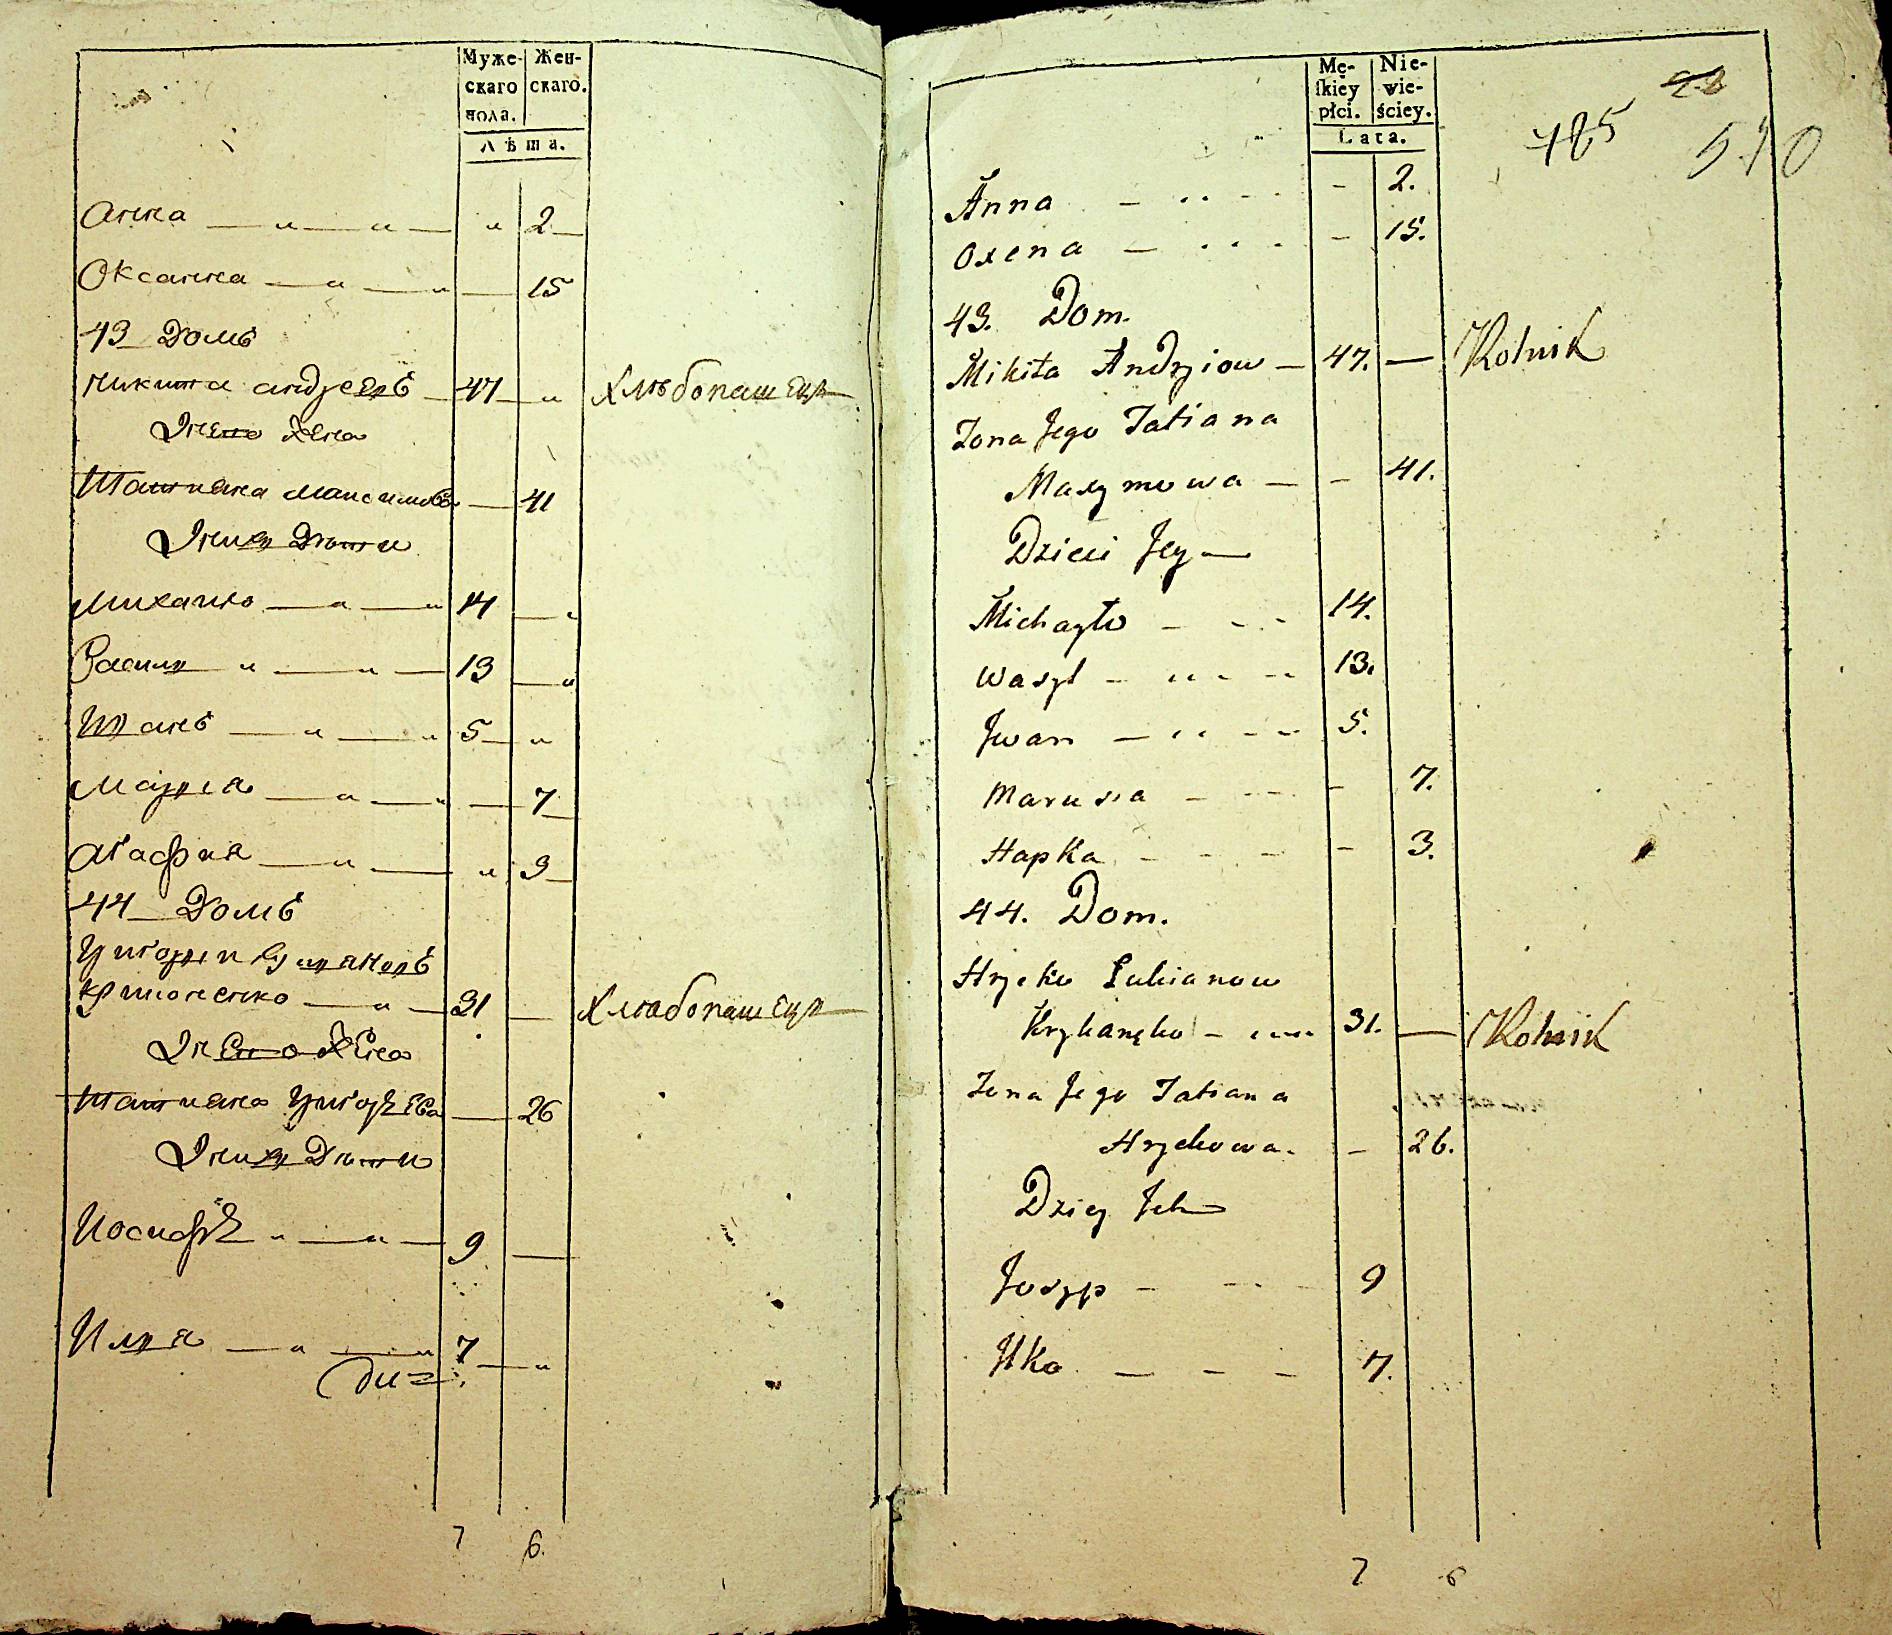 Муже- Жен-
скаго скаго.
пола.
Лѣта.
Анна — „ — „ — „ 2
Оксанна — „ — „ — 15
43 Домъ
Никита Андреевъ — 47 — „ Хлѣбопашецъ
У него Жена
Татиана Максимова — 41
У нихъ Дѣти
Михаило — „ — „ 14 — „
Василь „ — „ — 13 — „
Иванъ — „ — „ 5 — „
Марья — „ — „ — 7
Агафия — „ — „ 3
44 Домъ
Григорий Лукяновъ
— „ — 31 — Хлѣбопашецъ
У Него Жена
Татиана Григорьева — 26
У нихъ Дѣти
Иосифъ „ — „ — 9 —
Илья — „ — „ 7 — „
7 6.
Mę- Nie-
ſkiey wie-
płci. ściey.
Lata.
485 510
Anna — .. - - 2.
Oxena — . . . - 15.
43. Dom.
Mikita Andrziow — 47. — Rolnik
Zona Jego Tatiana
Maxymowa — - 41.
Dzieci Jey —
Michayło - - - 14.
Wasyl - .. - - 13.
Jwan — .. - - 5.
Marusia - - - - 7.
Hapka - - - - 3.
44. Dom.
Hryćko Lukianow
- .... 31. — Rolnik
Zona Jego Tatiana
Hryckowa. - 26.
Dziey Jch
Josyp - - - 9
Ilko — - - 7.
7 6